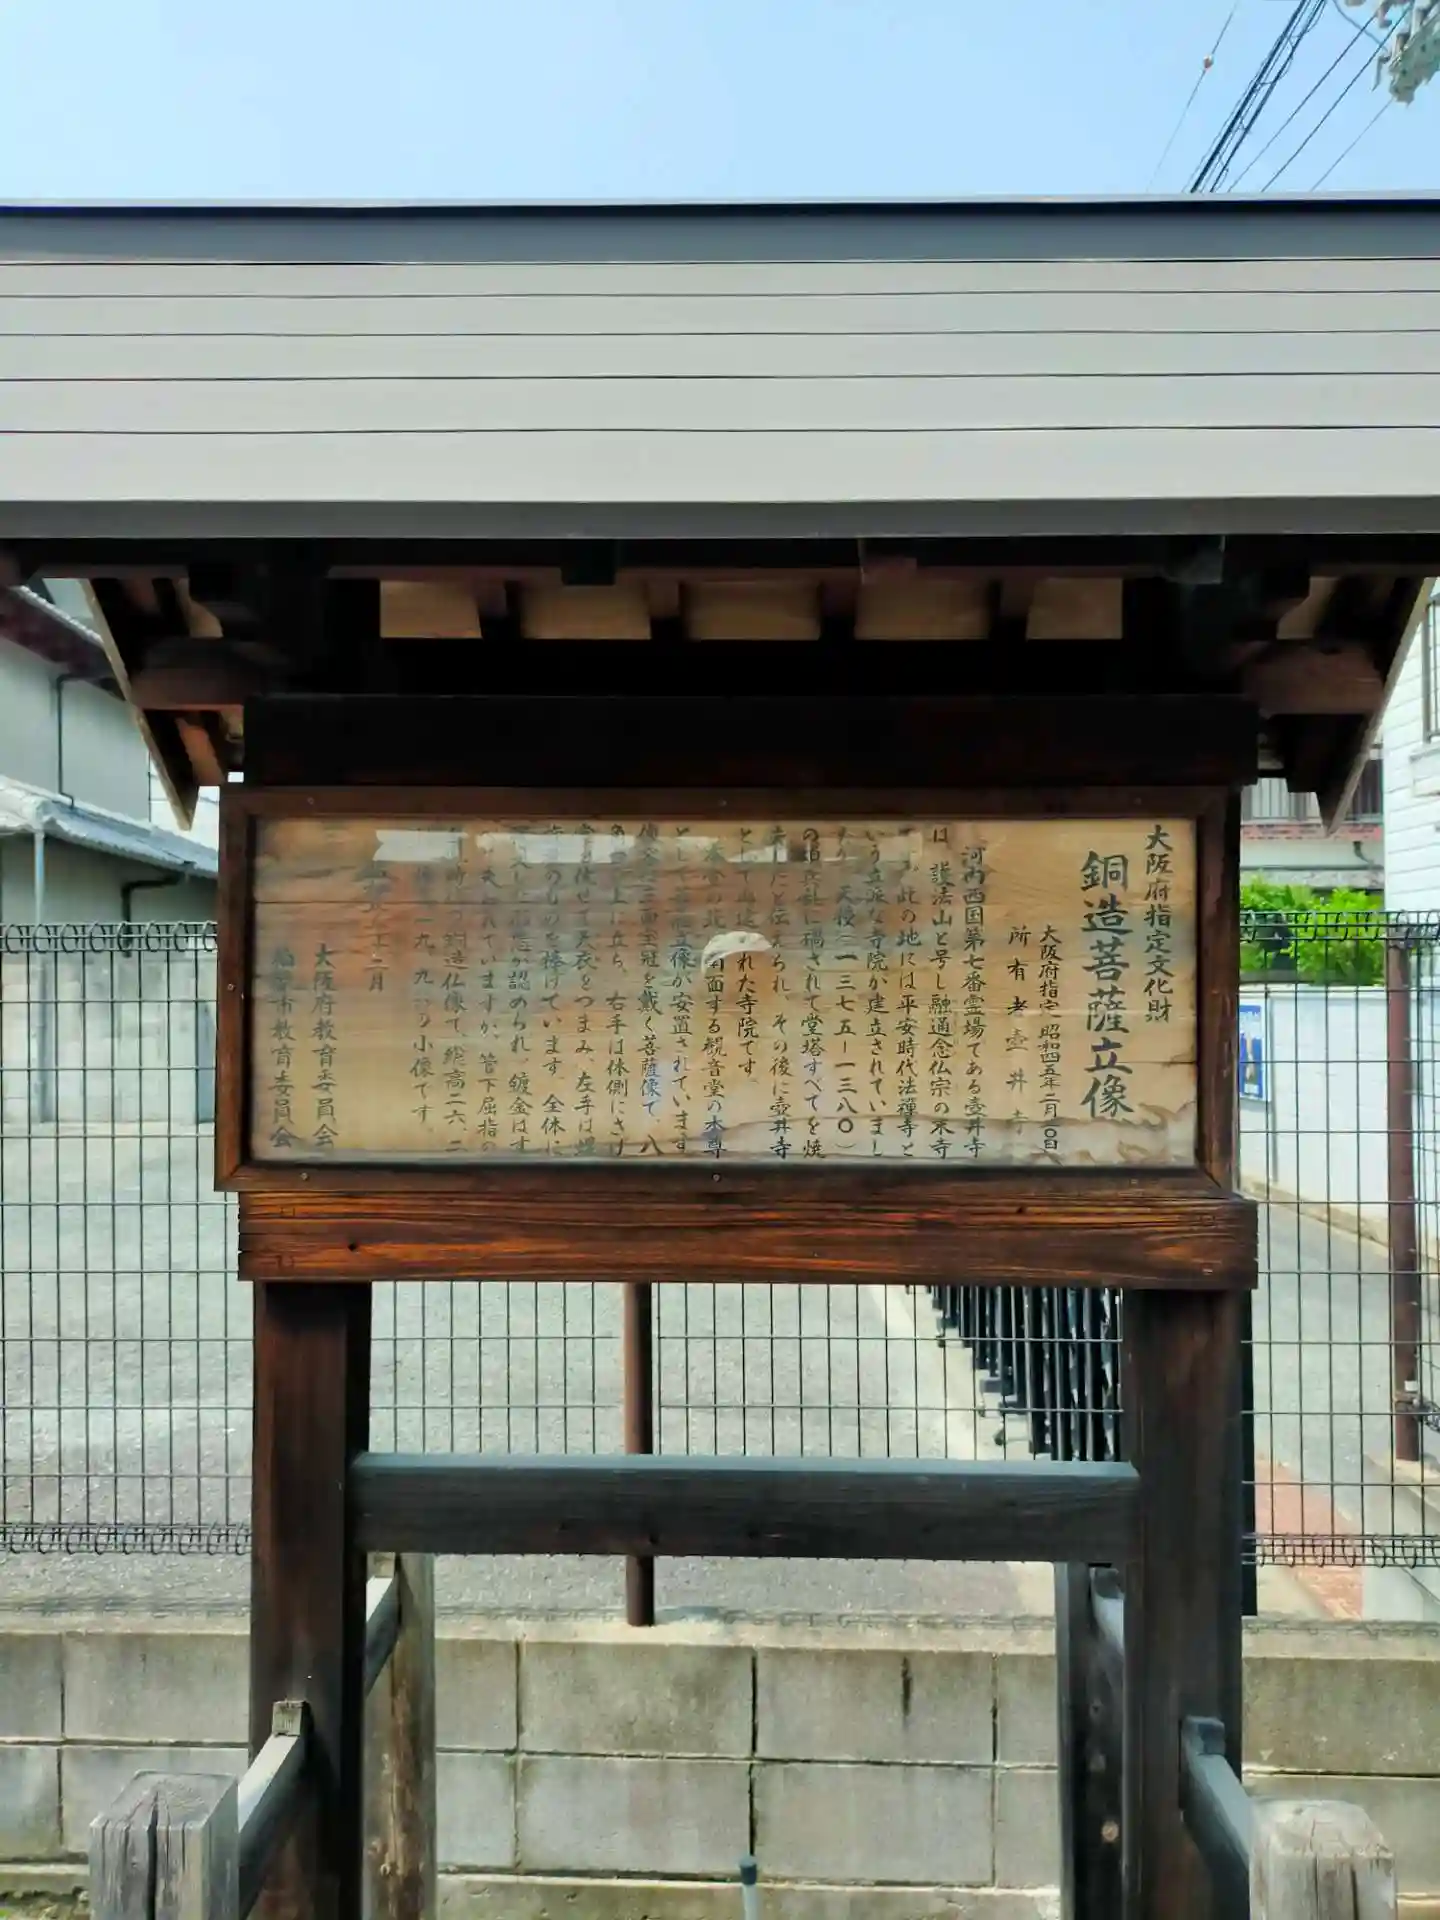 大阪府指定文化財
銅造菩薩立像
大阪府指定 昭和四五年二月二〇日
所有者 壺井寺
河内西国第七番霊場である壺井寺
は、護法山と号し融通念仏宗の末寺
此の地には平安時代法禪寺と
いう立派な寺院が建立されていまし
天授(一三七五ー一三八〇)
の 兵乱に禍されて堂塔すべてを焼
たと伝えられ、その後に壺井寺
として再建された寺院です。
本堂の北 南面する観音堂の本尊
として菩薩立像が安置されています
三面宝冠を戴く菩薩像で、八
上に立ち、右手は体側にさげ
せて天衣をつまみ、左手は
のものを捧げています。全体に
が認められ、鍍金はす
失われていますが、管下屈指の
銅造仏像で、総高二六、二
一九、九 小像です。
二月
大阪府教育委員会
市教育委員会